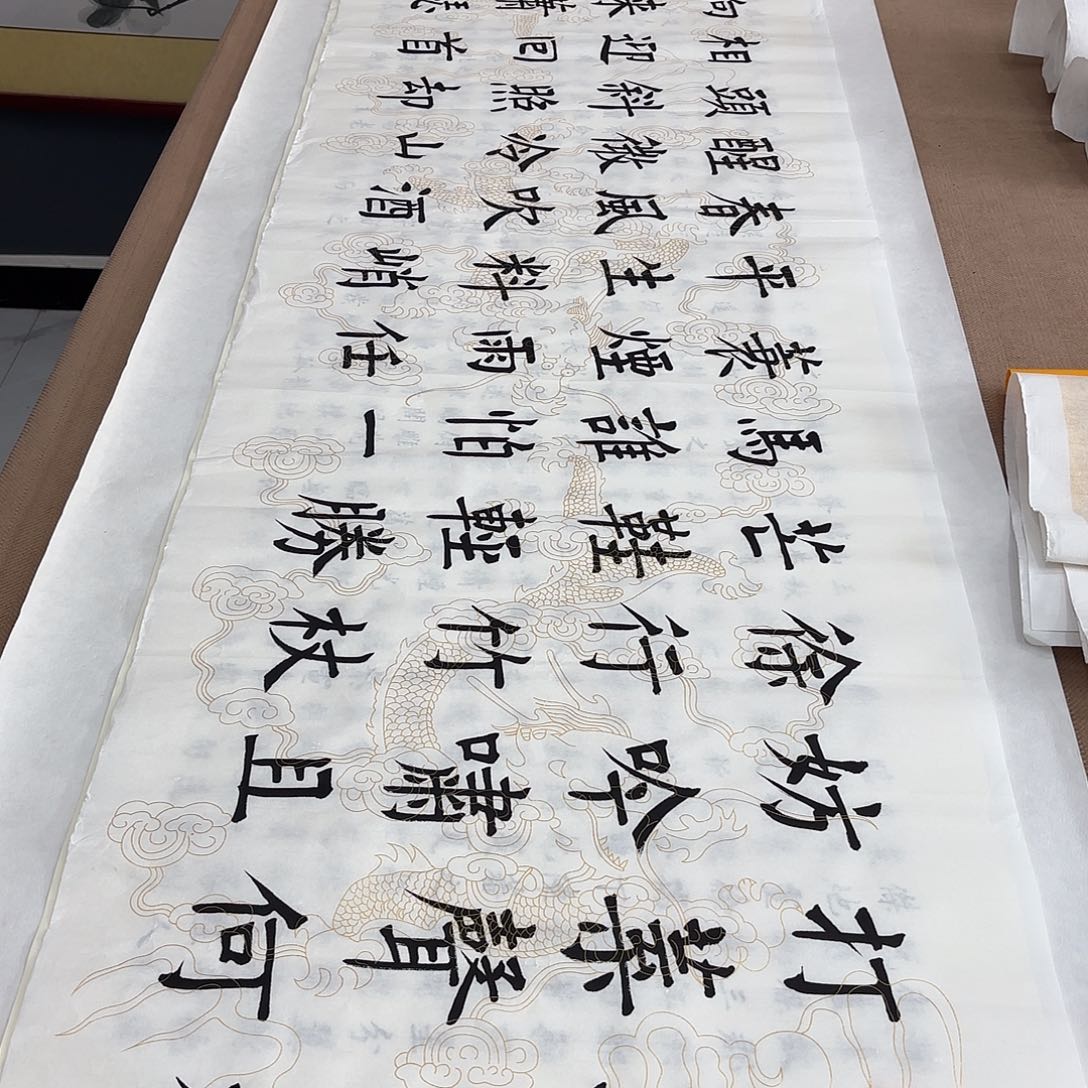 打葉聲何
妨吟嘯且
徐行竹杖
芒鞋輕勝
馬誰怕一
蓑煙雨任
平生料峭
春風吹酒
醒微冷山
頭斜照却
相迎回首
向來蕭瑟